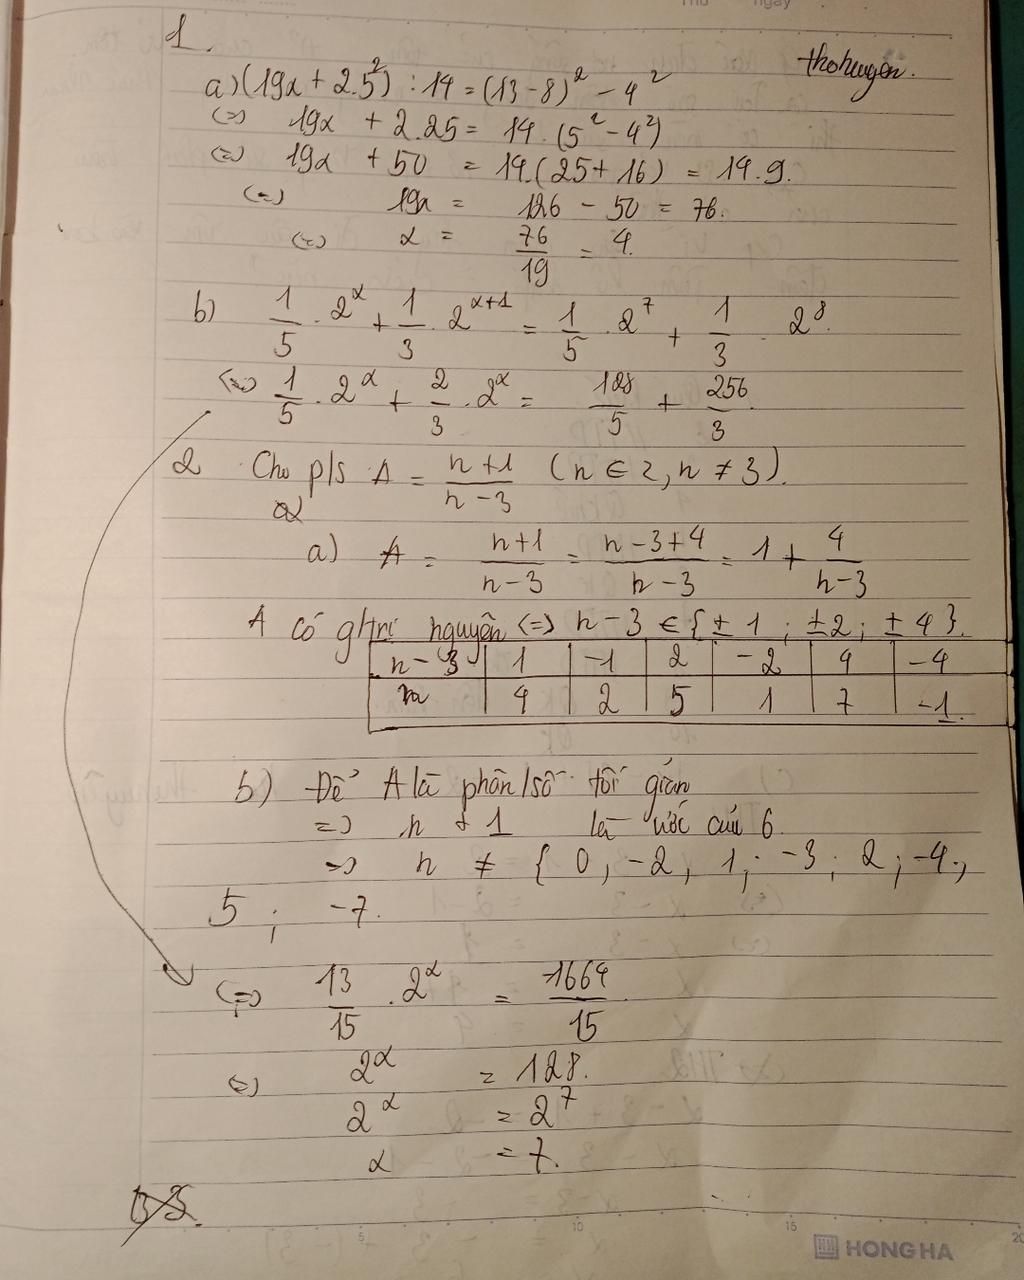 1.
thohuyen.
a) (19x + 2.5²) : 14 = (13-8)² - 4²
(=) 19x + 2.25 = 14.(5² - 4²)
(=) 19x + 50 = 14.(25+16) = 14.9.
(=) 19x = 126 - 50 = 76.
(=) x = 76/19 = 4.
b) 1/5 . 2^x + 1/3 . 2^(x+1) = 1/5 . 2^7 + 1/3 . 2^8.
(=) 1/5 . 2^x + 2/3 . 2^x = 128/5 + 256/3.
2 Cho p/s A = (n+1)/(n-3) (n ∈ Z, n ≠ 3).
a) A = (n+1)/(n-3) = (n-3+4)/(n-3) = 1 + 4/(n-3)
A có g/trị nguyên (=) n-3 ∈ {±1 ; ±2 ; ±4}.
n-3 | 1 | -1 | 2 | -2 | 4 | -4
n | 4 | 2 | 5 | 1 | 7 | -1.
b) Để A là phân/số tối giản
=) n + 1 là ước của 6.
=) n ≠ { 0, -2, 1; -3; 2; -4;
5 ; -7.
(=) 13/15 . 2^x = 1664/15
(=) 2^x = 128.
2^x = 2^7
x = 7.
HONG HA
5 10 15 20